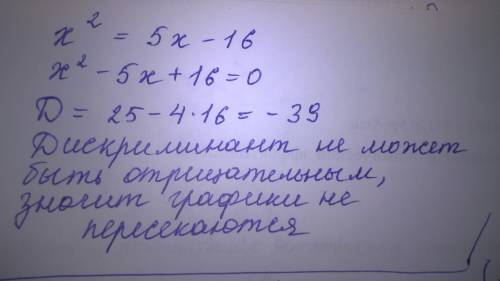 x² = 5x - 16
x² - 5x + 16 = 0
D = 25 - 4·16 = - 39
Дискриминант не может
быть отрицательным,
значит графики не
пересекаются